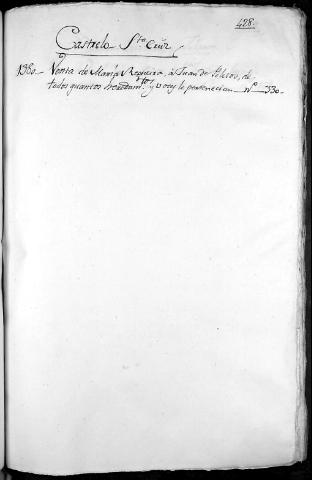 428.
Castrelo S.ta Cruz
1380. Venta de María Requeira, à Juan de de
todos quantos heredam.tos y voces le pertenecian N.º 330.